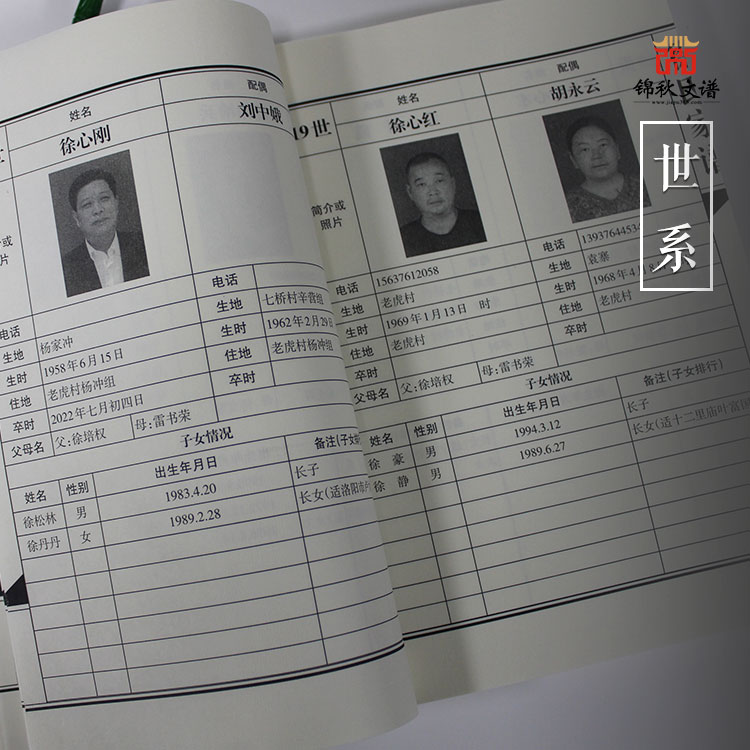 锦秋文谱
世系
姓名
配偶
徐心刚
刘中娥
电话
电话
生地
杨家冲
生地
七桥村辛营组
生时
1958年6月15日
生时
1962年2月29日
住地
老虎村杨冲组
住地
老虎村杨冲组
卒时
2022年七月初四日
卒时
父母名
父:徐培权
母:雷书荣
子女情况
姓名
性别
出生年月日
备注(子女排
徐松林
男
1983.4.20
长子
徐丹丹
女
1989.2.28
长女(适洛阳市
19世
姓名
配偶
徐心红
胡永云
简介或
照片
电话
15637612058
电话
1393764453
生地
老虎村
生地
袁寨
生时
1969年1月13日 时
生时
1968年4月8
住地
老虎村
住地
老虎村
卒时
卒时
父母名
父:徐培权
母:雷书荣
子女情况
姓名
性别
出生年月日
备注(子女排行)
徐豪
男
1994.3.12
长子
徐静
男
1989.6.27
长女(适十二里庙叶富国